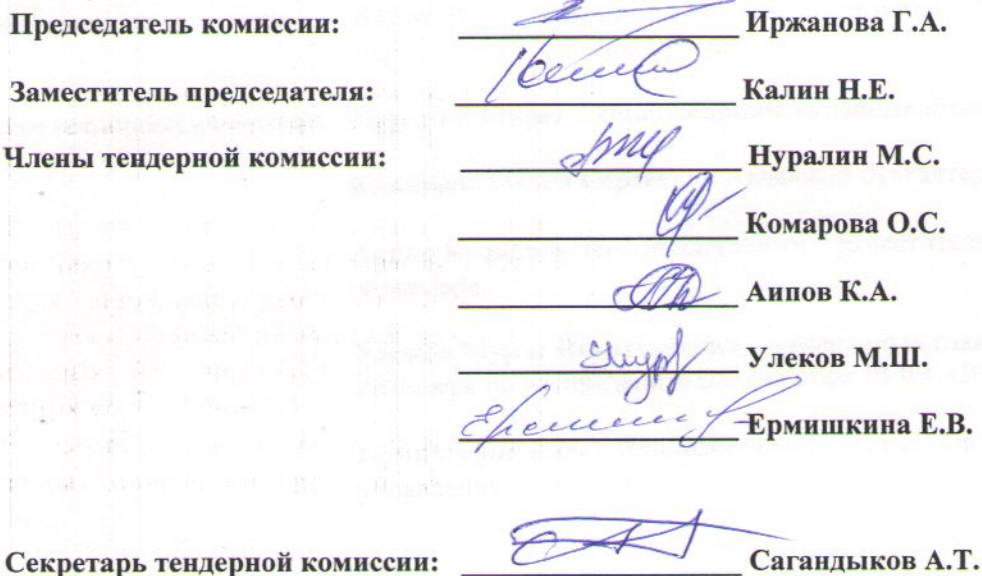 Председатель комиссии: Иржанова Г.А.
Заместитель председателя: Калин Н.Е.
Члены тендерной комиссии: Нуралин М.С.
Комарова О.С.
Аипов К.А.
Улеков М.Ш.
Ермишкина Е.В.
Секретарь тендерной комиссии: Сагандыков А.Т.